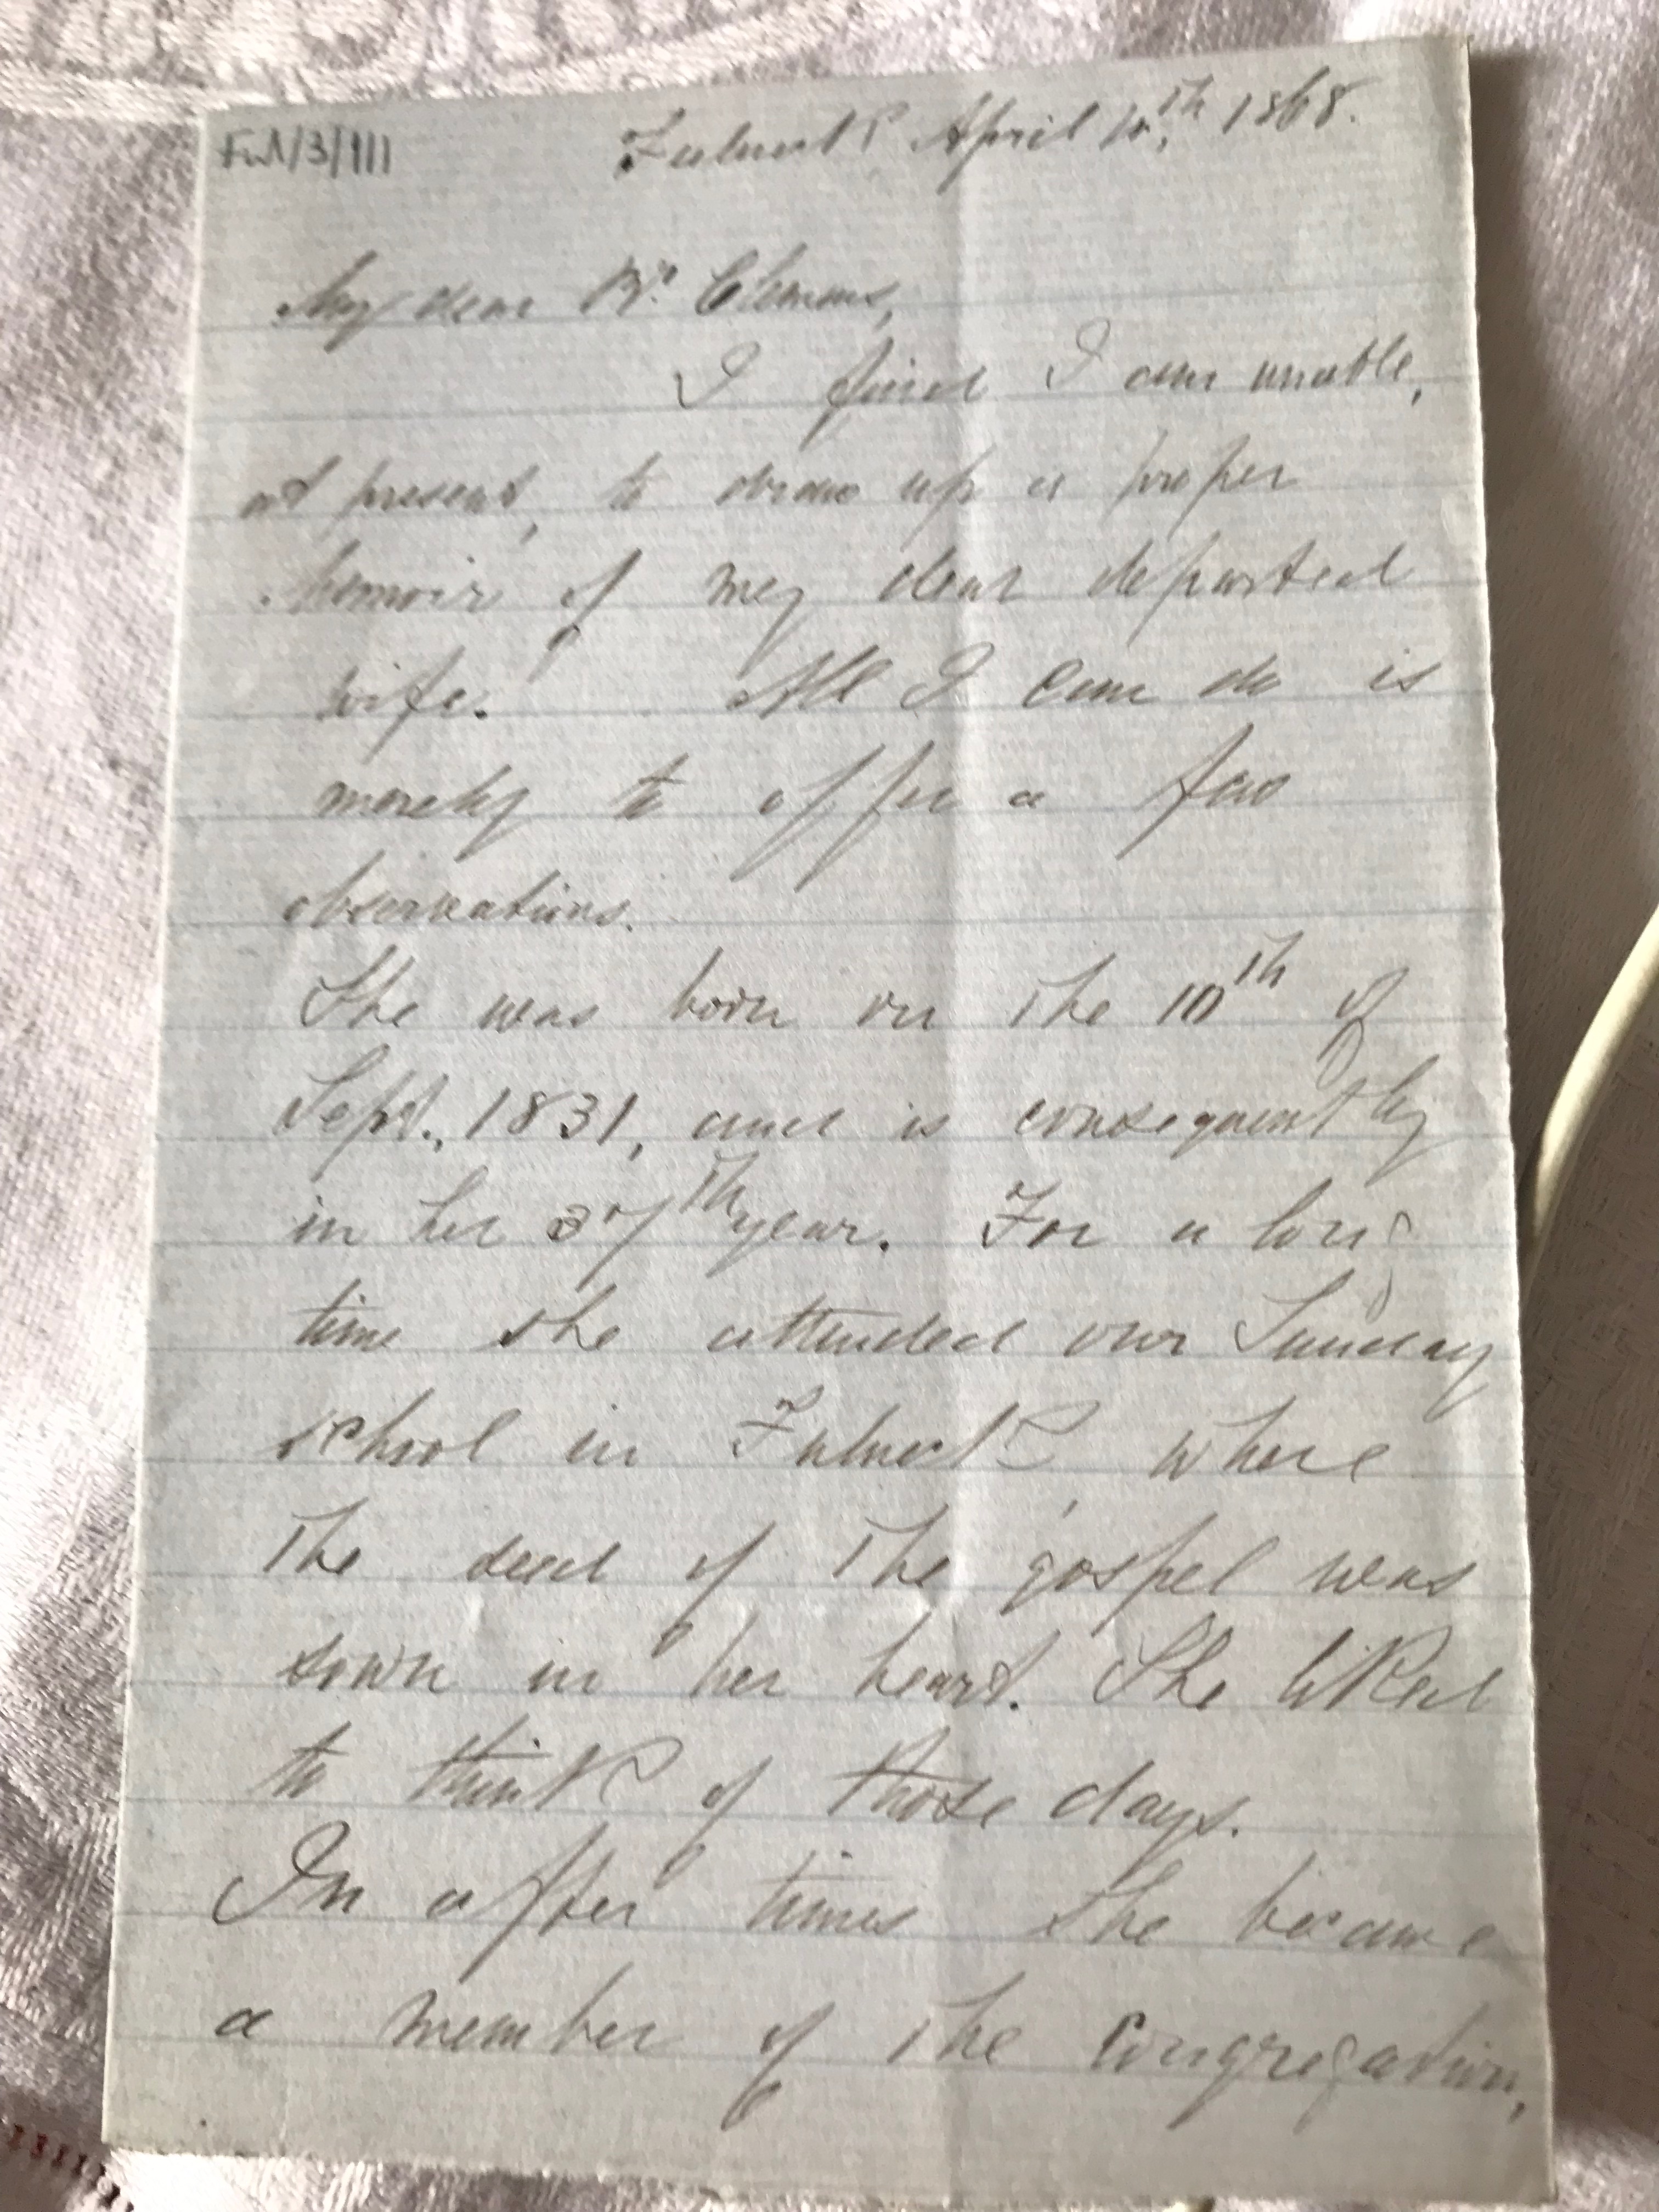 Ful/3/9/11
Fulneck April 10th, 1868.
My dear Br. Clemens,
I find I am unable,
at present, to draw up a proper
Memoir of my dear departed
wife. All I can do is
merely to offer a few
observations.
She was born on the 10th of
Sept., 1831, and is consequently
in her 37th year. For a long
time she attended our Sunday
school in Fulneck, where
the seed of the gospel was
sown in her heart. She liked
to think of those days.
In after times she became
a member of the congregation,